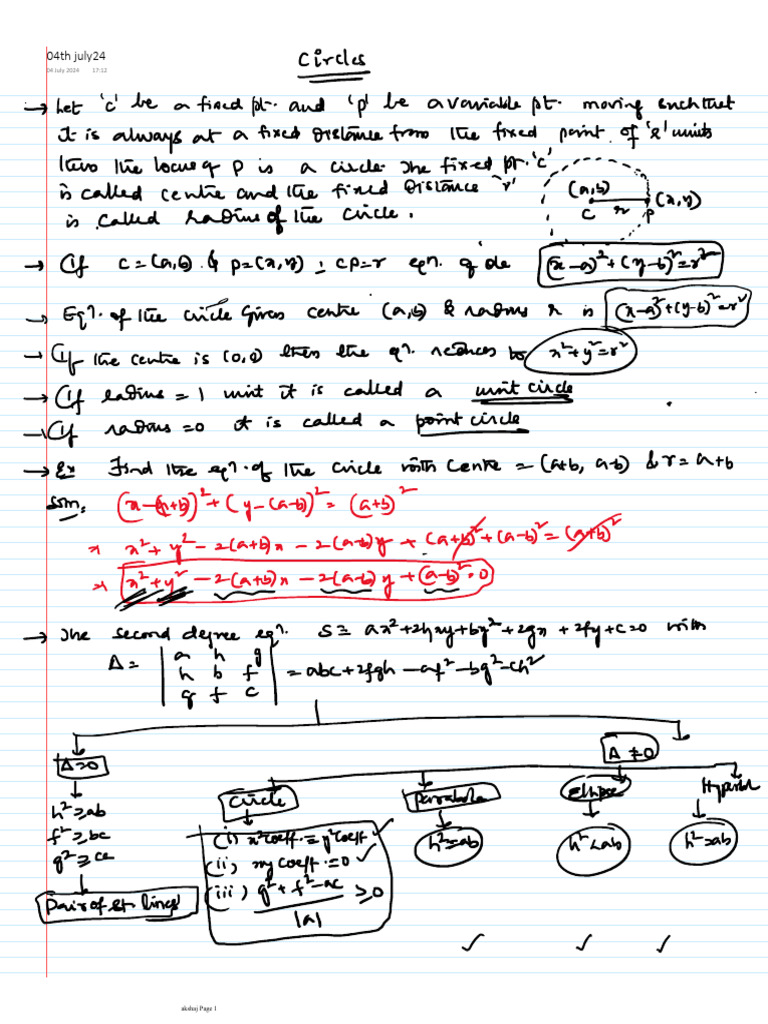 04th july24
04 July 2024 17:12
Circles
→ Let 'c' be a fixed pt. and 'p' be a variable pt. moving such that
it is always at a fixed distance from the fixed point of 'r' units
then the locus of P is a circle. The fixed pt. 'c'
is called centre and the fixed distance 'r'
is called radius of the circle.
(a,b) (x,y)
C r P
→ If c=(a,b) & p=(x,y) ; cp=r eqn. of (x-a)²+(y-b)²=r²
→ Eqn. of the circle given centre (a,b) & radius r is (x-a)²+(y-b)²=r²
→ If the centre is (0,0) then the eqn. reduces to x²+y²=r²
→ If radius = 1 unit it is called a unit circle
→ If radius =0 it is called a point circle
→ Ex Find the eqn. of the circle with centre = (a+b, a-b) & r=a+b
Soln: (x-(a+b))²+(y-(a-b))² = (a+b)²
⇒ x²+y²-2(a+b)x-2(a-b)y+(a+b)²+(a-b)²=(a+b)²
⇒ x²+y²-2(a+b)x-2(a-b)y+(a-b)²=0
→ The second degree eqn. S≡ax²+2hxy+by²+2gx+2fy+c=0 with
Δ= | a h g |
| h b f | = abc+2fgh-af²-bg²-ch²
| g f c |
Δ=0 Δ≠0
Circle Parabola Ellipse Hyperbol
h²≥ab
f²≥bc
g²≥ca
Pair of st. lines
(i) x²coeff.=y²coeff ✓
(ii) xy coeff.=0 ✓
(iii) g²+f²-ac ≥0
|a|
h²=ab h²<ab h²>ab
✓ ✓ ✓
akshaj Page 1